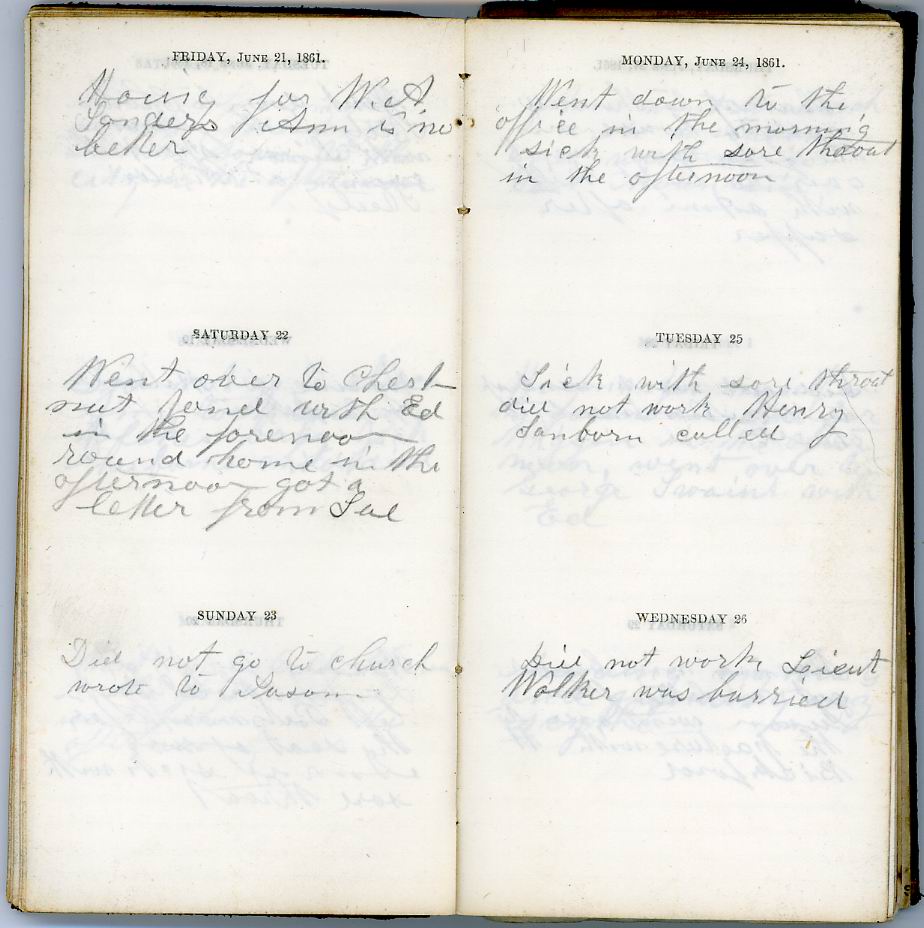 FRIDAY, JUNE 21, 1861.
for W. A
Sanders Ann is no
better
SATURDAY 22
Went over to Chest-
nut pond with Ed
in the forenoon
round home in the
afternoon got a
letter from Sue
SUNDAY 23
Did not go to church
wrote to
MONDAY, JUNE 24, 1861.
Went down to the
office in the morning
sick with sore throat
in the afternoon
TUESDAY 25
Sick with sore throat
did not work Henry
Sanborn called
WEDNESDAY 26
Did not work, Lieut
Walker was burried